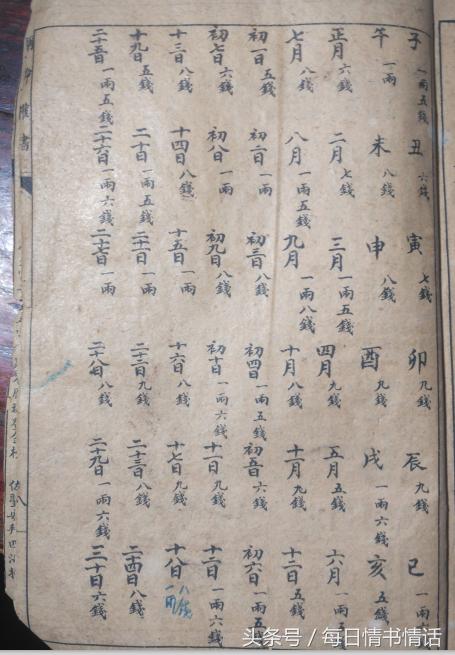 子 一兩五錢 丑 六錢 寅 七錢 卯 九錢 辰 九錢 巳 一兩
午 一兩 未 八錢 申 八錢 酉 九錢 戌 一兩六錢 亥 五錢
正月 六錢 二月 七錢 三月 一兩五錢 四月 九錢 五月 五錢 六月 一兩五
七月 八錢 八月 一兩五錢 九月 一兩八錢 十月 八錢 十一月 九錢 十二月 五錢
初一日 五錢 初二日 一兩 初三日 八錢 初四日 一兩五錢 初五日 六錢 初六日 一兩五
初七日 六錢 初八 一兩 初九日 八錢 初十日 一兩六錢 十一日 九錢 十二日 一兩六錢
十三日 八錢 十四日 八錢 十五日 一兩 十六日 八錢 十七日 九錢 十八日 一兩 八錢
十九日 五錢 二十日 一兩五錢 二十一日 一兩 二十二日 九錢 二十三日 八錢 二十四日 八錢
二十五日 一兩五錢 二十六日 一兩六錢 二十七日 一兩 二十八日 八錢 二十九日 一兩六錢 三十日 六錢
書
头条号 / 每日情书情话